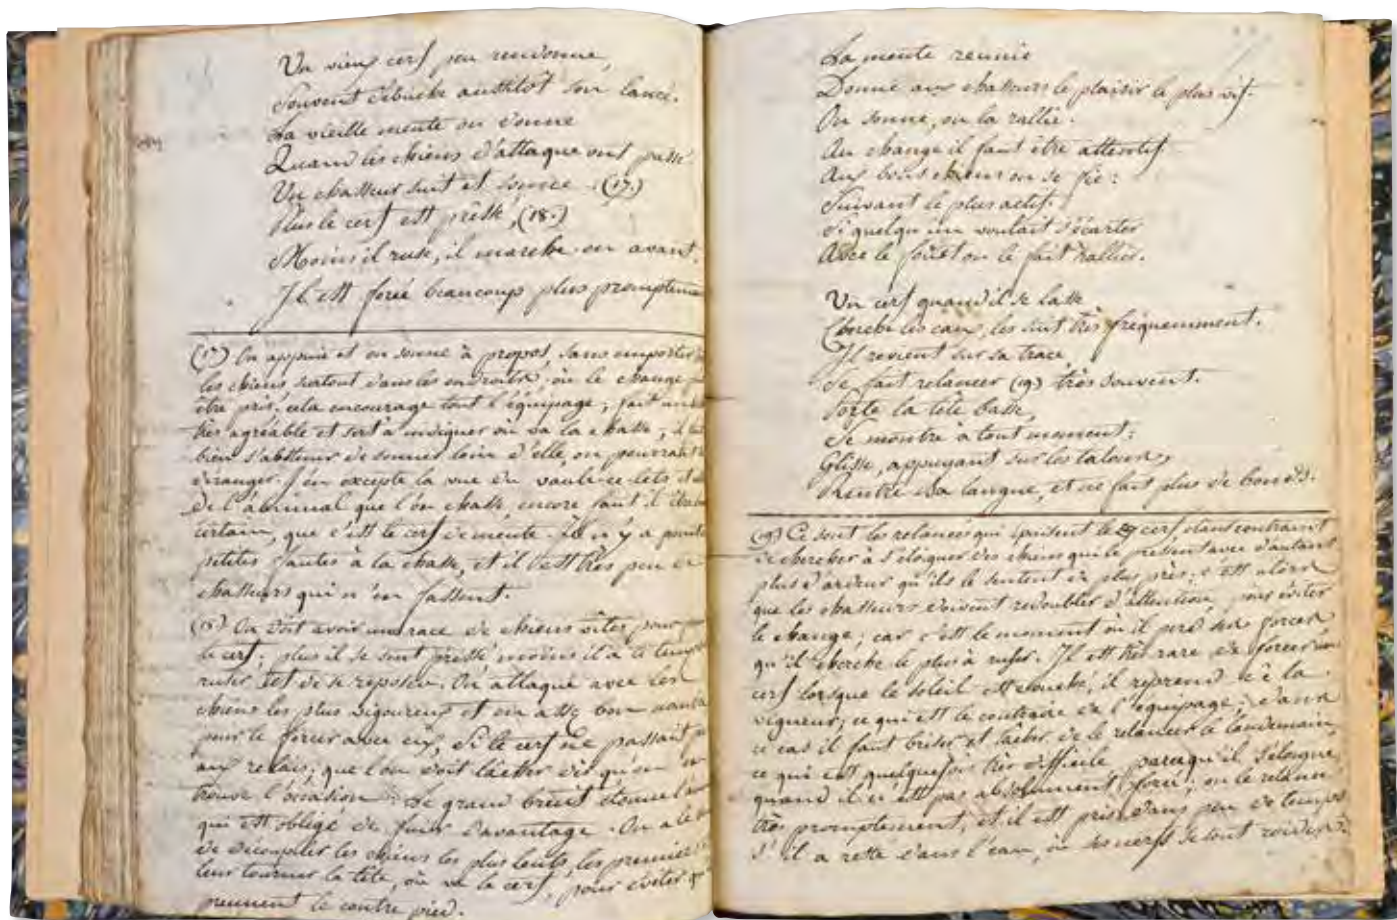 Un vieux cerf peu randonne,
Souvent débuche aussitôt son lancé.
La vieille meute on donne
Quand les chiens d'attaque ont passé
Un chasseur suit et sonne . (17.)
Plus le cerf est pressé, (18.)
Moins il ruse, il marche en avant.
Il est forcé beaucoup plus promptement
(17) On appuie et on sonne à propos, sans emporter
les chiens surtout dans les endroits où le change
être pris. cela encourage tout l'équipage, fait un
très agréable et sert à indiquer où va la chasse; il
bien s'abstenir de sonner loin d'elle, on pourrait
déranger. j'en excepte la vue du vaulecelets et
de l'animal que l'on chasse, encore faut-il être
certain, que c'est le cerf de meute. Il n'y a point
petites fautes à la chasse, et il est très peu de
chasseurs qui n'en fassent.
(18) On doit avoir une race de chiens vites pour
le cerf; plus il se sent pressé moins il a le temps
ruser et de se reposer. On attaque avec les
chiens les plus vigoureux et on a
pour le forcer avec eux, si le cerf ne passait
aux relais; que l'on doit lâcher dès qu'on en
trouve l'occasion. Le grand bruit étonne
qui est obligé de fuir davantage. On a
de découpler les chiens les plus lents les premiers
leur tourner la tête, où va le cerf, pour éviter
prennent le contre pied.
La meute reunie
Donne aux chasseurs le plaisir le plus vif.
On sonne, on la rallie.
Au change il faut être attentif
Aux bons chiens on se fie:
Suivant le plus actif.
Si quelqu'un voulait s'écarter
Avec le fouet on le fait rallier.
Un cerf quand il se lasse
Cherche les eaux, les suit très fréquemment.
Il revient sur sa trace,
Se fait relancer (19) très souvent.
Porte la tête basse,
Se montre à tout moment:
Glisse, appuyant sur les talons,
Rentre sa langue, et ne fait plus de bonds.
(19) Ce sont les relancés qui épuisent le cerf étant contraint
de chercher à s'éloigner des chiens qui le pressent avec d'autant
plus d'ardeur qu'ils le sentent de plus près; c'est alors
que les chasseurs doivent redoubler d'attention, pour éviter
le change; car c'est le moment où il perd ses forces
qu'il cherche le plus à ruser. Il est très rare de forcer un
cerf lorsque le soleil est couché, il reprend de la
vigueur; ce qui est le contraire de l'équipage; dans
ce cas il faut briser et tâcher de le relancer le lendemain,
ce qui est quelquefois très difficile parcequ'il s'éloigne
quand il n'est pas absolument forcé; on le relance
très promptement, et il est pris dans peu de temps
s'il a resté dans l'eau, où ses nerfs se sont roidis.